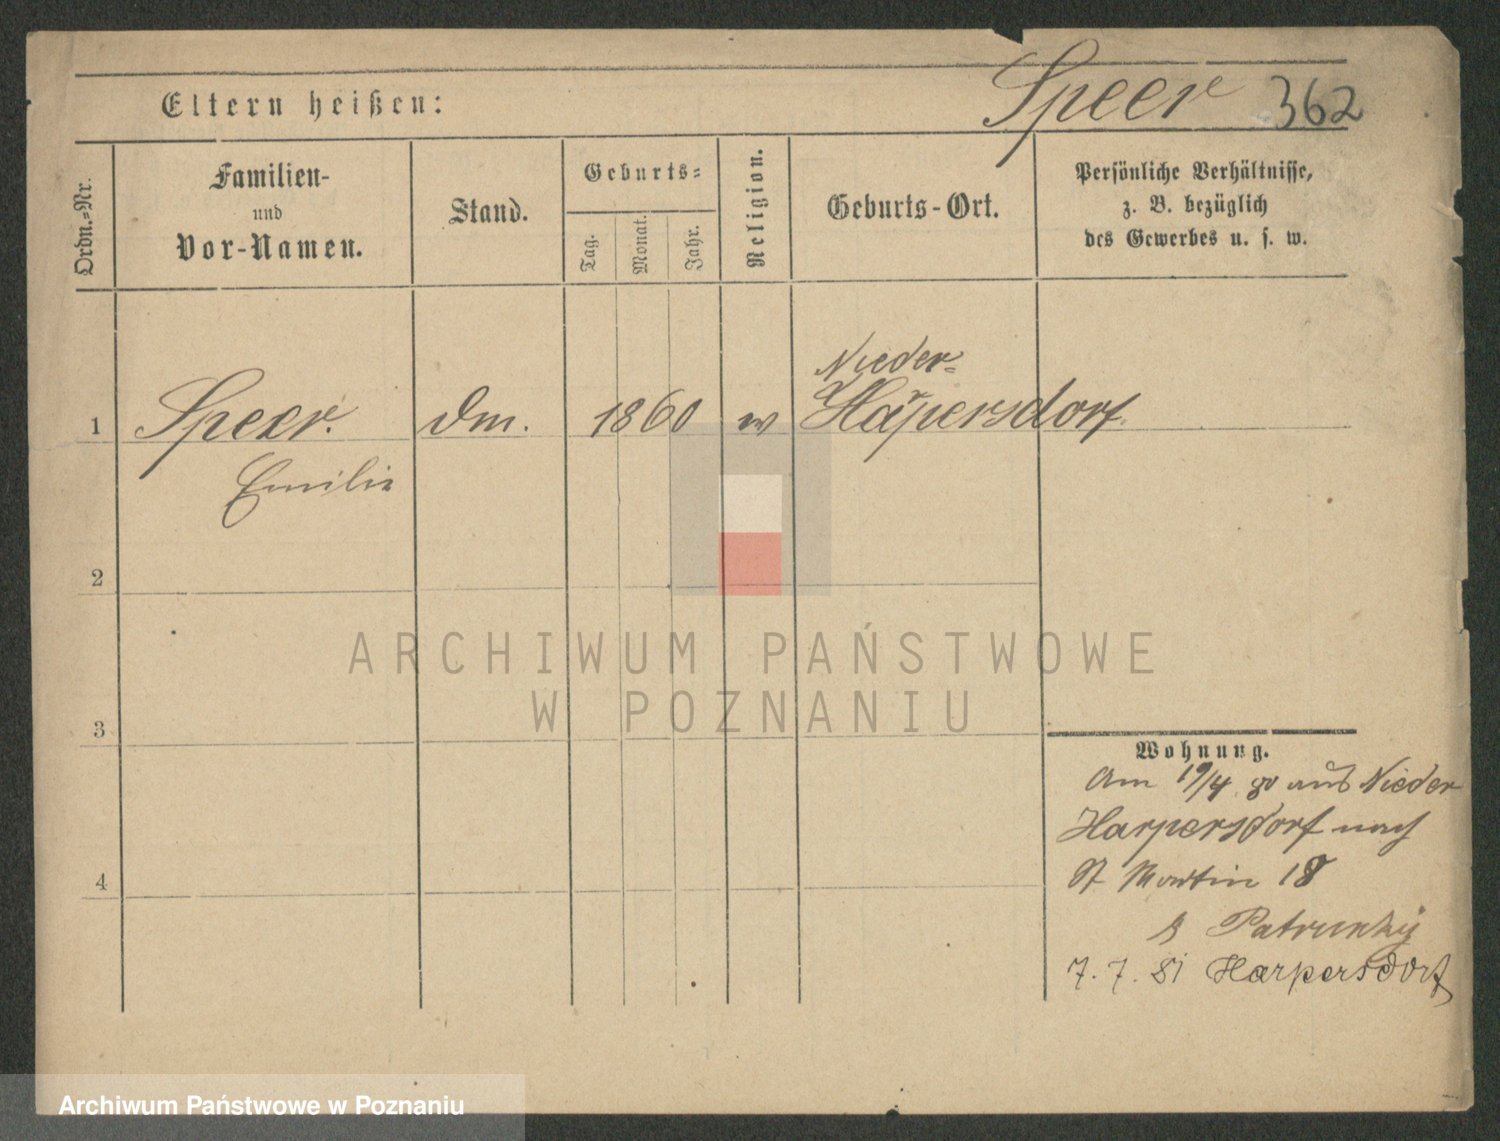 Speer 362
Eltern heißen:
Ordn.=Nr.
Familien-
und
Vor-Namen.
Stand.
Geburts=
Tag.
Monat.
Jahr.
Religion.
Geburts-Ort.
Persönliche Verhältnisse,
z. B. bezüglich
des Gewerbes u. s. w.
Nieder=
1 Speer. Dm. 1860 Harpersdorf
Emilie
2
3
4
Wohnung.
Am 19/4 80 aus Nieder
Harpersdorf nach
St Martin 18
b Patrunky
7. 7. 81 Harpersdorf
ARCHIWUM PAŃSTWOWE
W POZNANIU
Archiwum Państwowe w Poznaniu